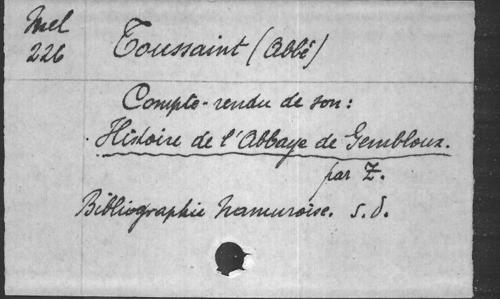 Mel
226
Toussaint (Abbé)
Compte-rendu de son:
Histoire de l'Abbaye de Gembloux.
par Z.
Bibliographie Namuroise. s.d.